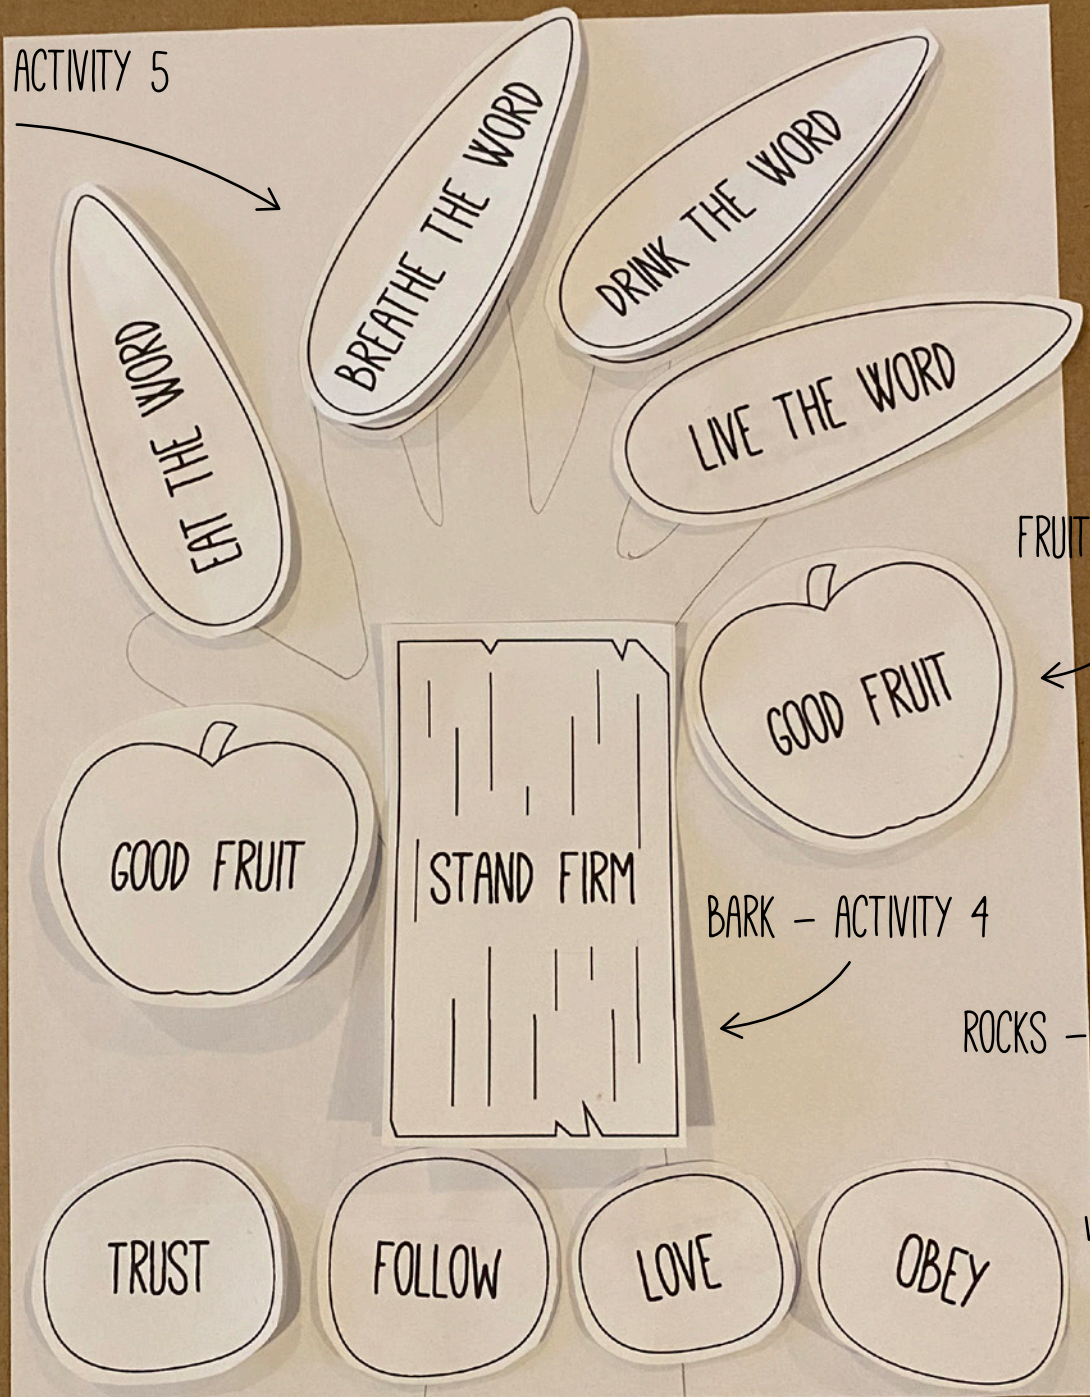 ACTIVITY 5
BREATHE THE WORD
DRINK THE WORD
EAT THE WORD
LIVE THE WORD
FRUIT
GOOD FRUIT
GOOD FRUIT
STAND FIRM
BARK – ACTIVITY 4
ROCKS –
TRUST
FOLLOW
LOVE
OBEY